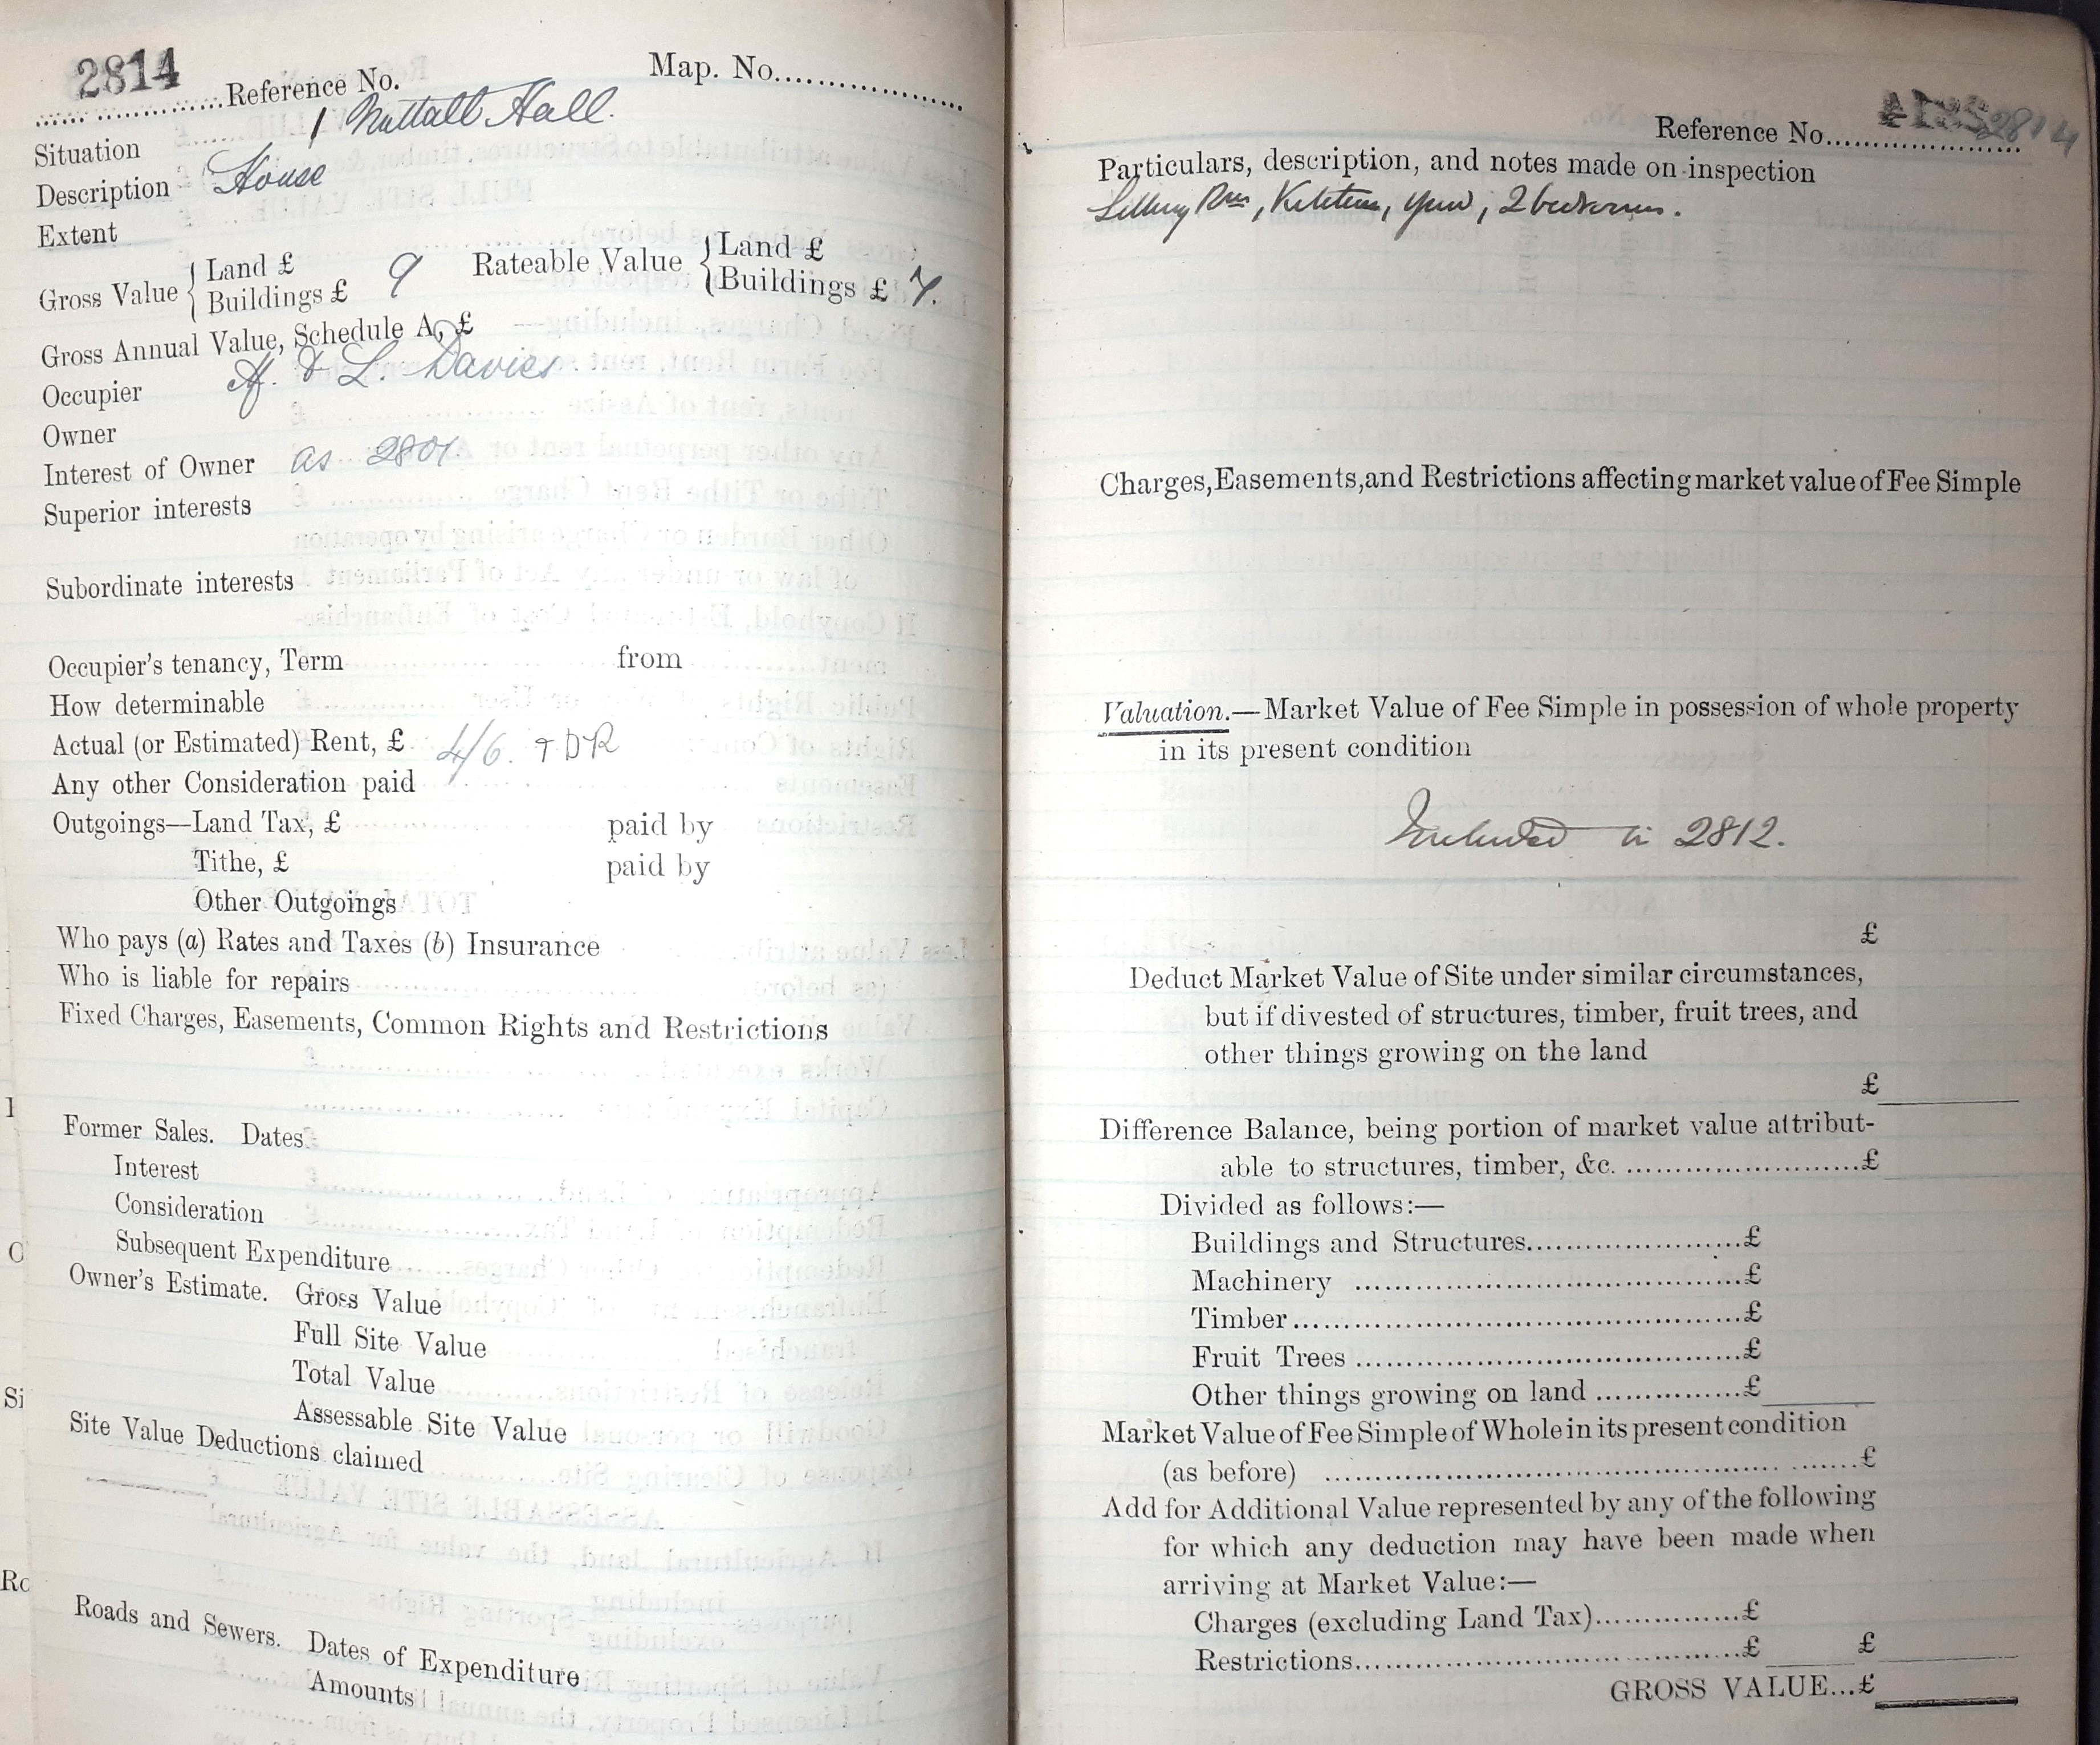 2814
Reference No.
Map. No.
Situation 1 Nuttall Hall.
Description House
Extent
Gross Value { Land £
Buildings £ 9
Rateable Value { Land £
Buildings £ 7.
Gross Annual Value, Schedule A, £
Occupier A. & L. Davies
Owner
Interest of Owner as 2801.
Superior interests
Subordinate interests
Occupier's tenancy, Term from
How determinable
Actual (or Estimated) Rent, £ 4/6. TDR
Any other Consideration paid
Outgoings—Land Tax, £ paid by
Tithe, £ paid by
Other Outgoings
Who pays (a) Rates and Taxes (b) Insurance
Who is liable for repairs
Fixed Charges, Easements, Common Rights and Restrictions
Former Sales. Dates
Interest
Consideration
Subsequent Expenditure
Owner's Estimate. Gross Value
Full Site Value
Total Value
Assessable Site Value
Site Value Deductions claimed
Roads and Sewers. Dates of Expenditure
Amounts
Reference No. 2814
Particulars, description, and notes made on inspection
Rm, Kitchen, yard, 2 bedrooms.
Charges, Easements, and Restrictions affecting market value of Fee Simple
Valuation.—Market Value of Fee Simple in possession of whole property
in its present condition
Included in 2812.
£
Deduct Market Value of Site under similar circumstances,
but if divested of structures, timber, fruit trees, and
other things growing on the land
£
Difference Balance, being portion of market value attribut-
able to structures, timber, &c. £
Divided as follows:—
Buildings and Structures £
Machinery £
Timber £
Fruit Trees £
Other things growing on land £
Market Value of Fee Simple of Whole in its present condition
(as before) £
Add for Additional Value represented by any of the following
for which any deduction may have been made when
arriving at Market Value:—
Charges (excluding Land Tax) £
Restrictions £ £
GROSS VALUE...£